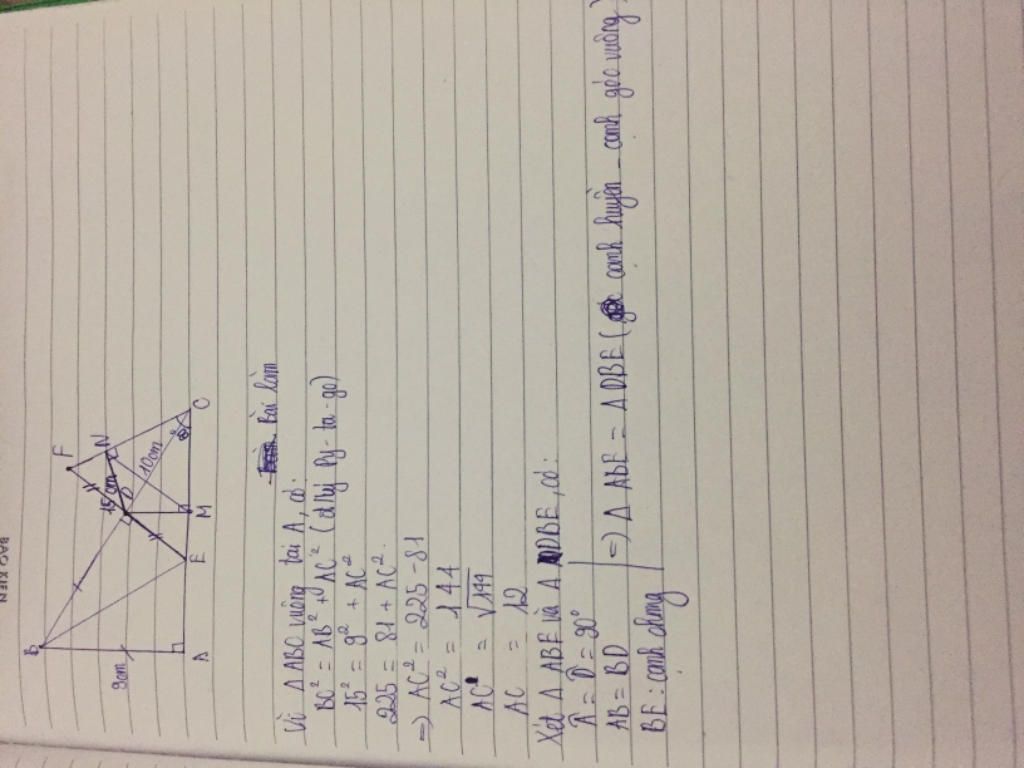 BẢO KIÊN
B
F
15cm
N
D
10cm
9cm
A
E
M
C
Bài làm
Vì Δ ABC vuông tại A, có:
BC² = AB² + AC² (đ/lý Py-ta-go)
15² = 9² + AC²
225 = 81 + AC²
=> AC² = 225 - 81
AC² = 144
AC = √144
AC = 12
Xét Δ ABE và Δ DBE, có:
Â = D̂ = 90°
AB = BD
BE: cạnh chung
=> Δ ABE = Δ DBE ( cạnh huyền - cạnh góc vuông)